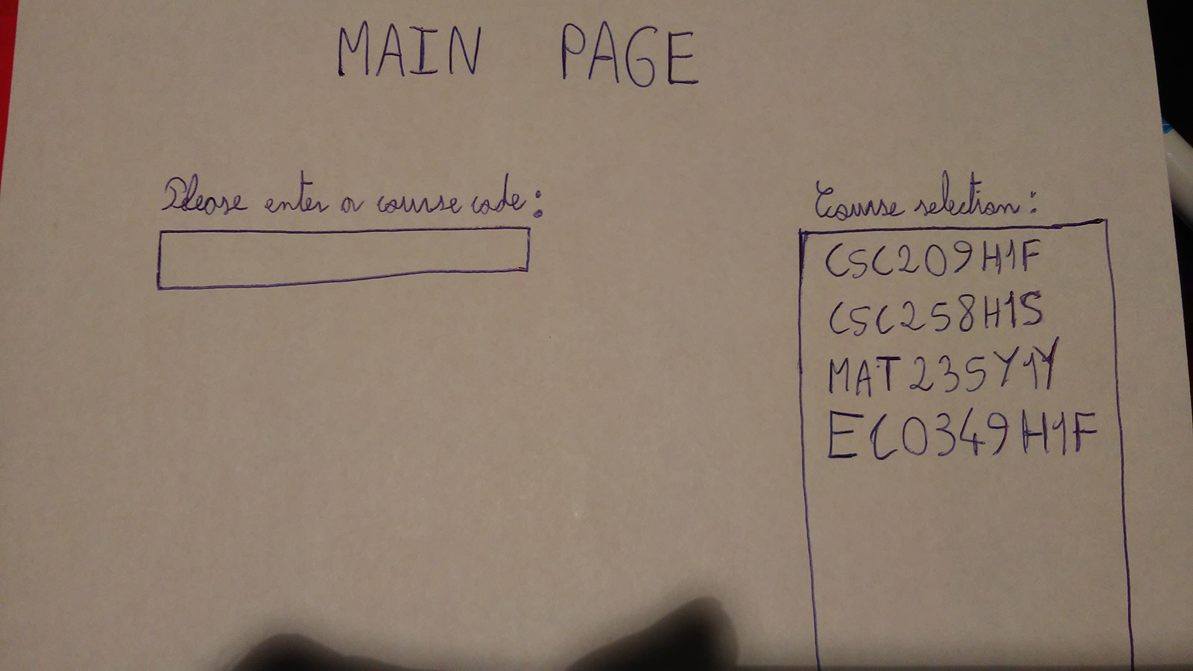 MAIN PAGE
Please enter a course code:
Course selection:
CSC209H1F
CSC258H1S
MAT235Y1Y
ECO349H1F